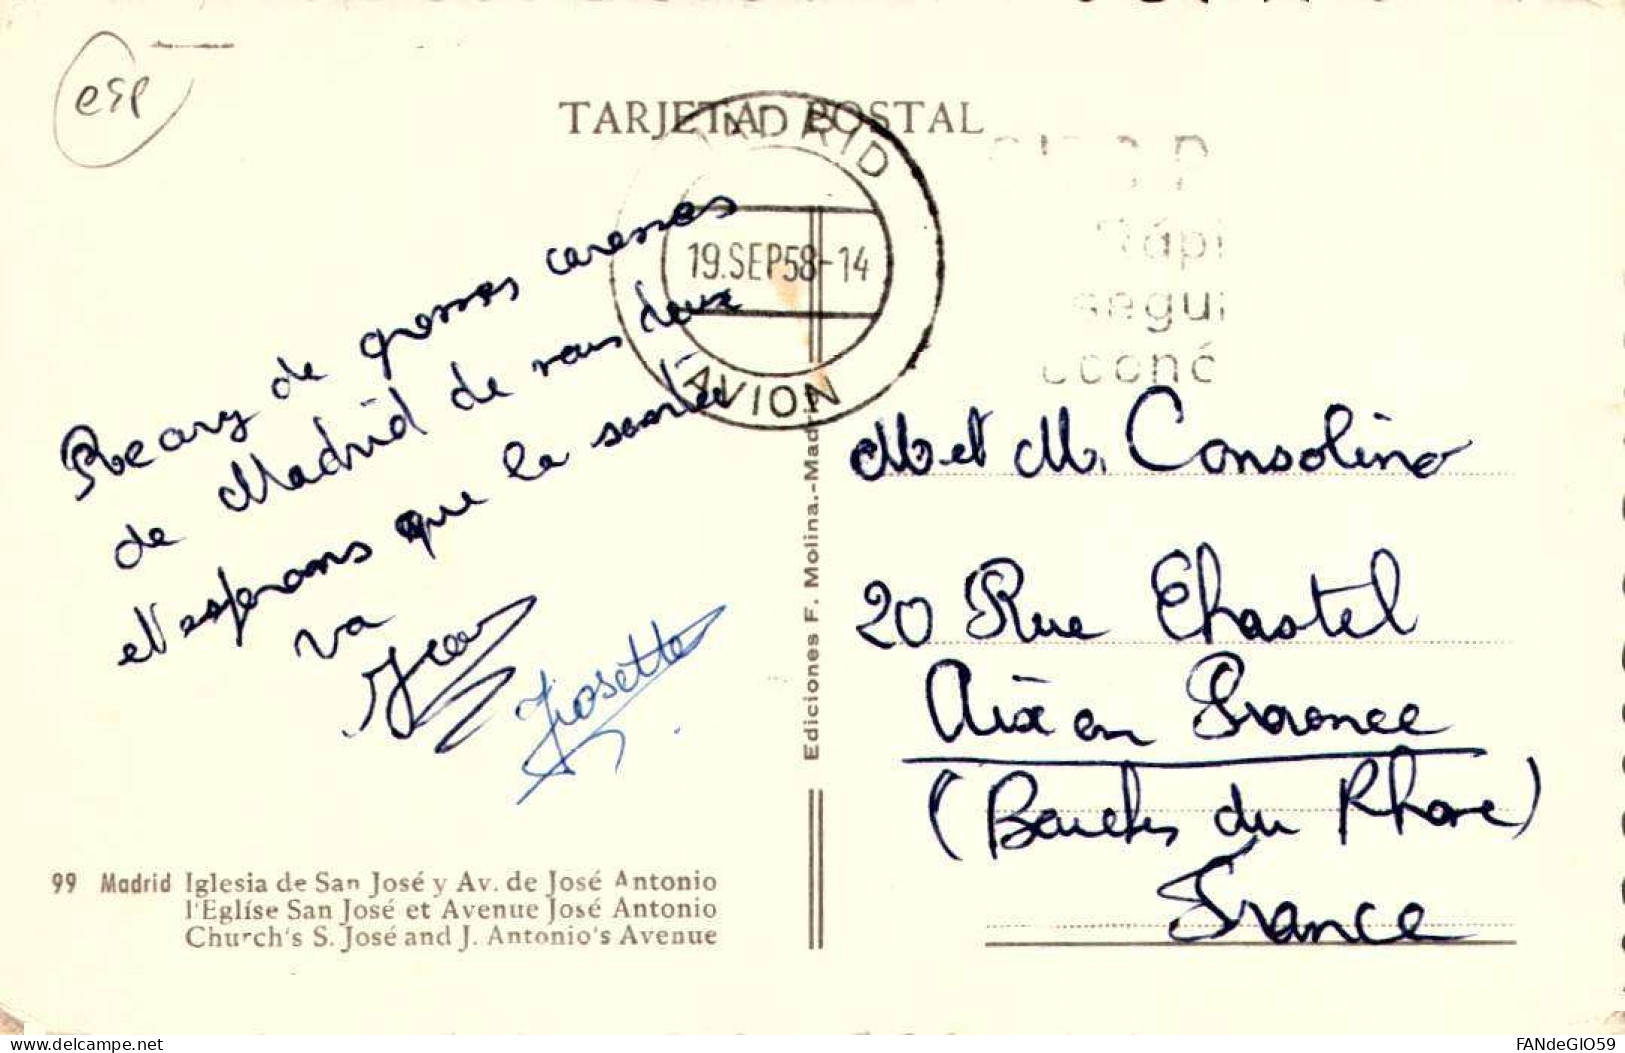 esp
TARJETA POSTAL
MADRID
19.SEP58-14
AVION
Rápi
segui
econó
de grosses caresses
de Madrid de vous deux
et esperons que la santée
va
Jean
Josette
M et M. Consolino
20 Rue Chastel
Aix en Provence
(Bouches du Rhone)
France
Ediciones F. Molina.-Madrid
99 Madrid Iglesia de San José y Av. de José Antonio
l'Eglise San José et Avenue José Antonio
Church's S. José and J. Antonio's Avenue
delcampe.net
FANdeGIO59